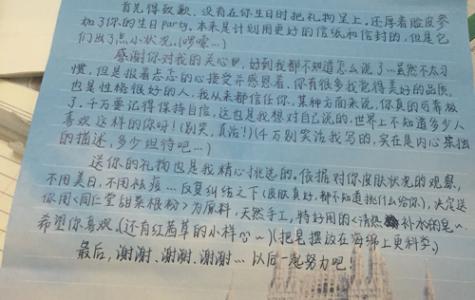 首先得致歉,没有在你生日时把礼物呈上,还厚着脸皮参
加了你的生日party,本来是计划用更好的信纸和信封的,但是它
们出了点小状况,(啰嗦…)
感谢你对我的关心!,好到我都不知道怎么说了…虽然不太习
惯,但是报着忐忑的心接受并感恩着,你有很多我觉得美好的品质,
也是性格很好的人,我从来都信任你,某种方面来说,你真的可靠极
了,千万要记得保持自信,这也是我想对自己说的,世界上不知道多少人
喜欢这样的你呀!(别笑,真诚!)(千万别笑话我写的,实在是内心最独
的描述,多少担待吧…)
送你的礼物也是我精心挑选的,依据对你皮肤状况的观察,
不用美白,不用祛痘…反复纠结之下(皮肤真好,都不知道挑什么给你),决定送
你用<同仁堂甜菜根粉>为原料,天然手工,特好用的<清热补水的皂~
希望你喜欢,(还有红茜草的小样心~)(把皂摆放在海绵上更科学)
最后,谢谢,谢谢,谢谢…以后一起努力吧